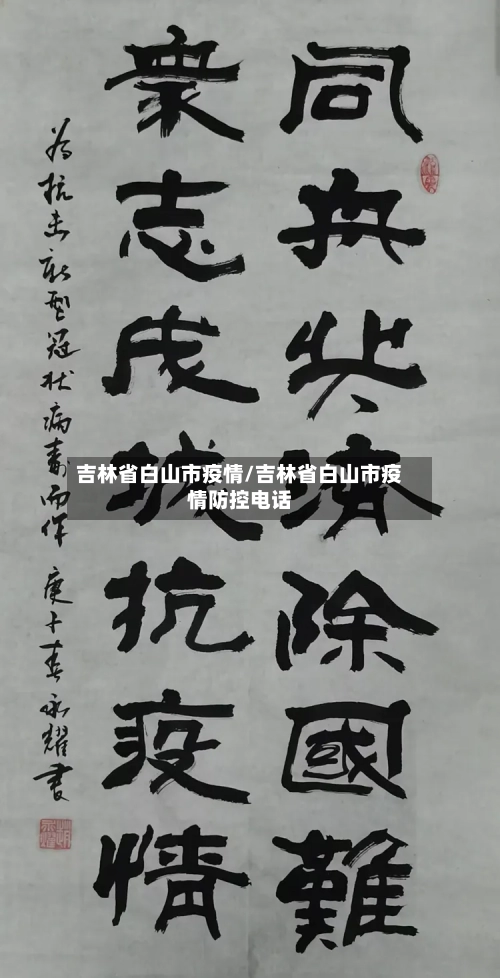 同舟共濟除國難
衆志成城抗疫情
为抗击新型冠状病毒而作 庚子春永耀書
吉林省白山市疫情/吉林省白山市疫
情防控电话